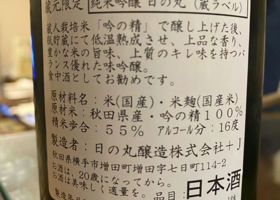 蔵元限定 純米吟醸 日の丸(蔵ラベル)
蔵人栽培米「吟の精」で醸し上げた後、
瓶貯蔵にて低温熟成させ、上品な香り、
豊かな米の旨味、上質のキレ味を持つバ
ランス優れた吟醸。
食中酒としてお勧めです。
原材料名:米(国産)・米麹(国産米)
原料米:秋田県産・吟の精100%
精米歩合:55% アルコール分:16度
製造者:日の丸醸造株式会社+J
秋田県横手市増田町増田字七日町114-2
お酒は、20歳になってから。
お酒は美味しく適量を。
品目:日本酒